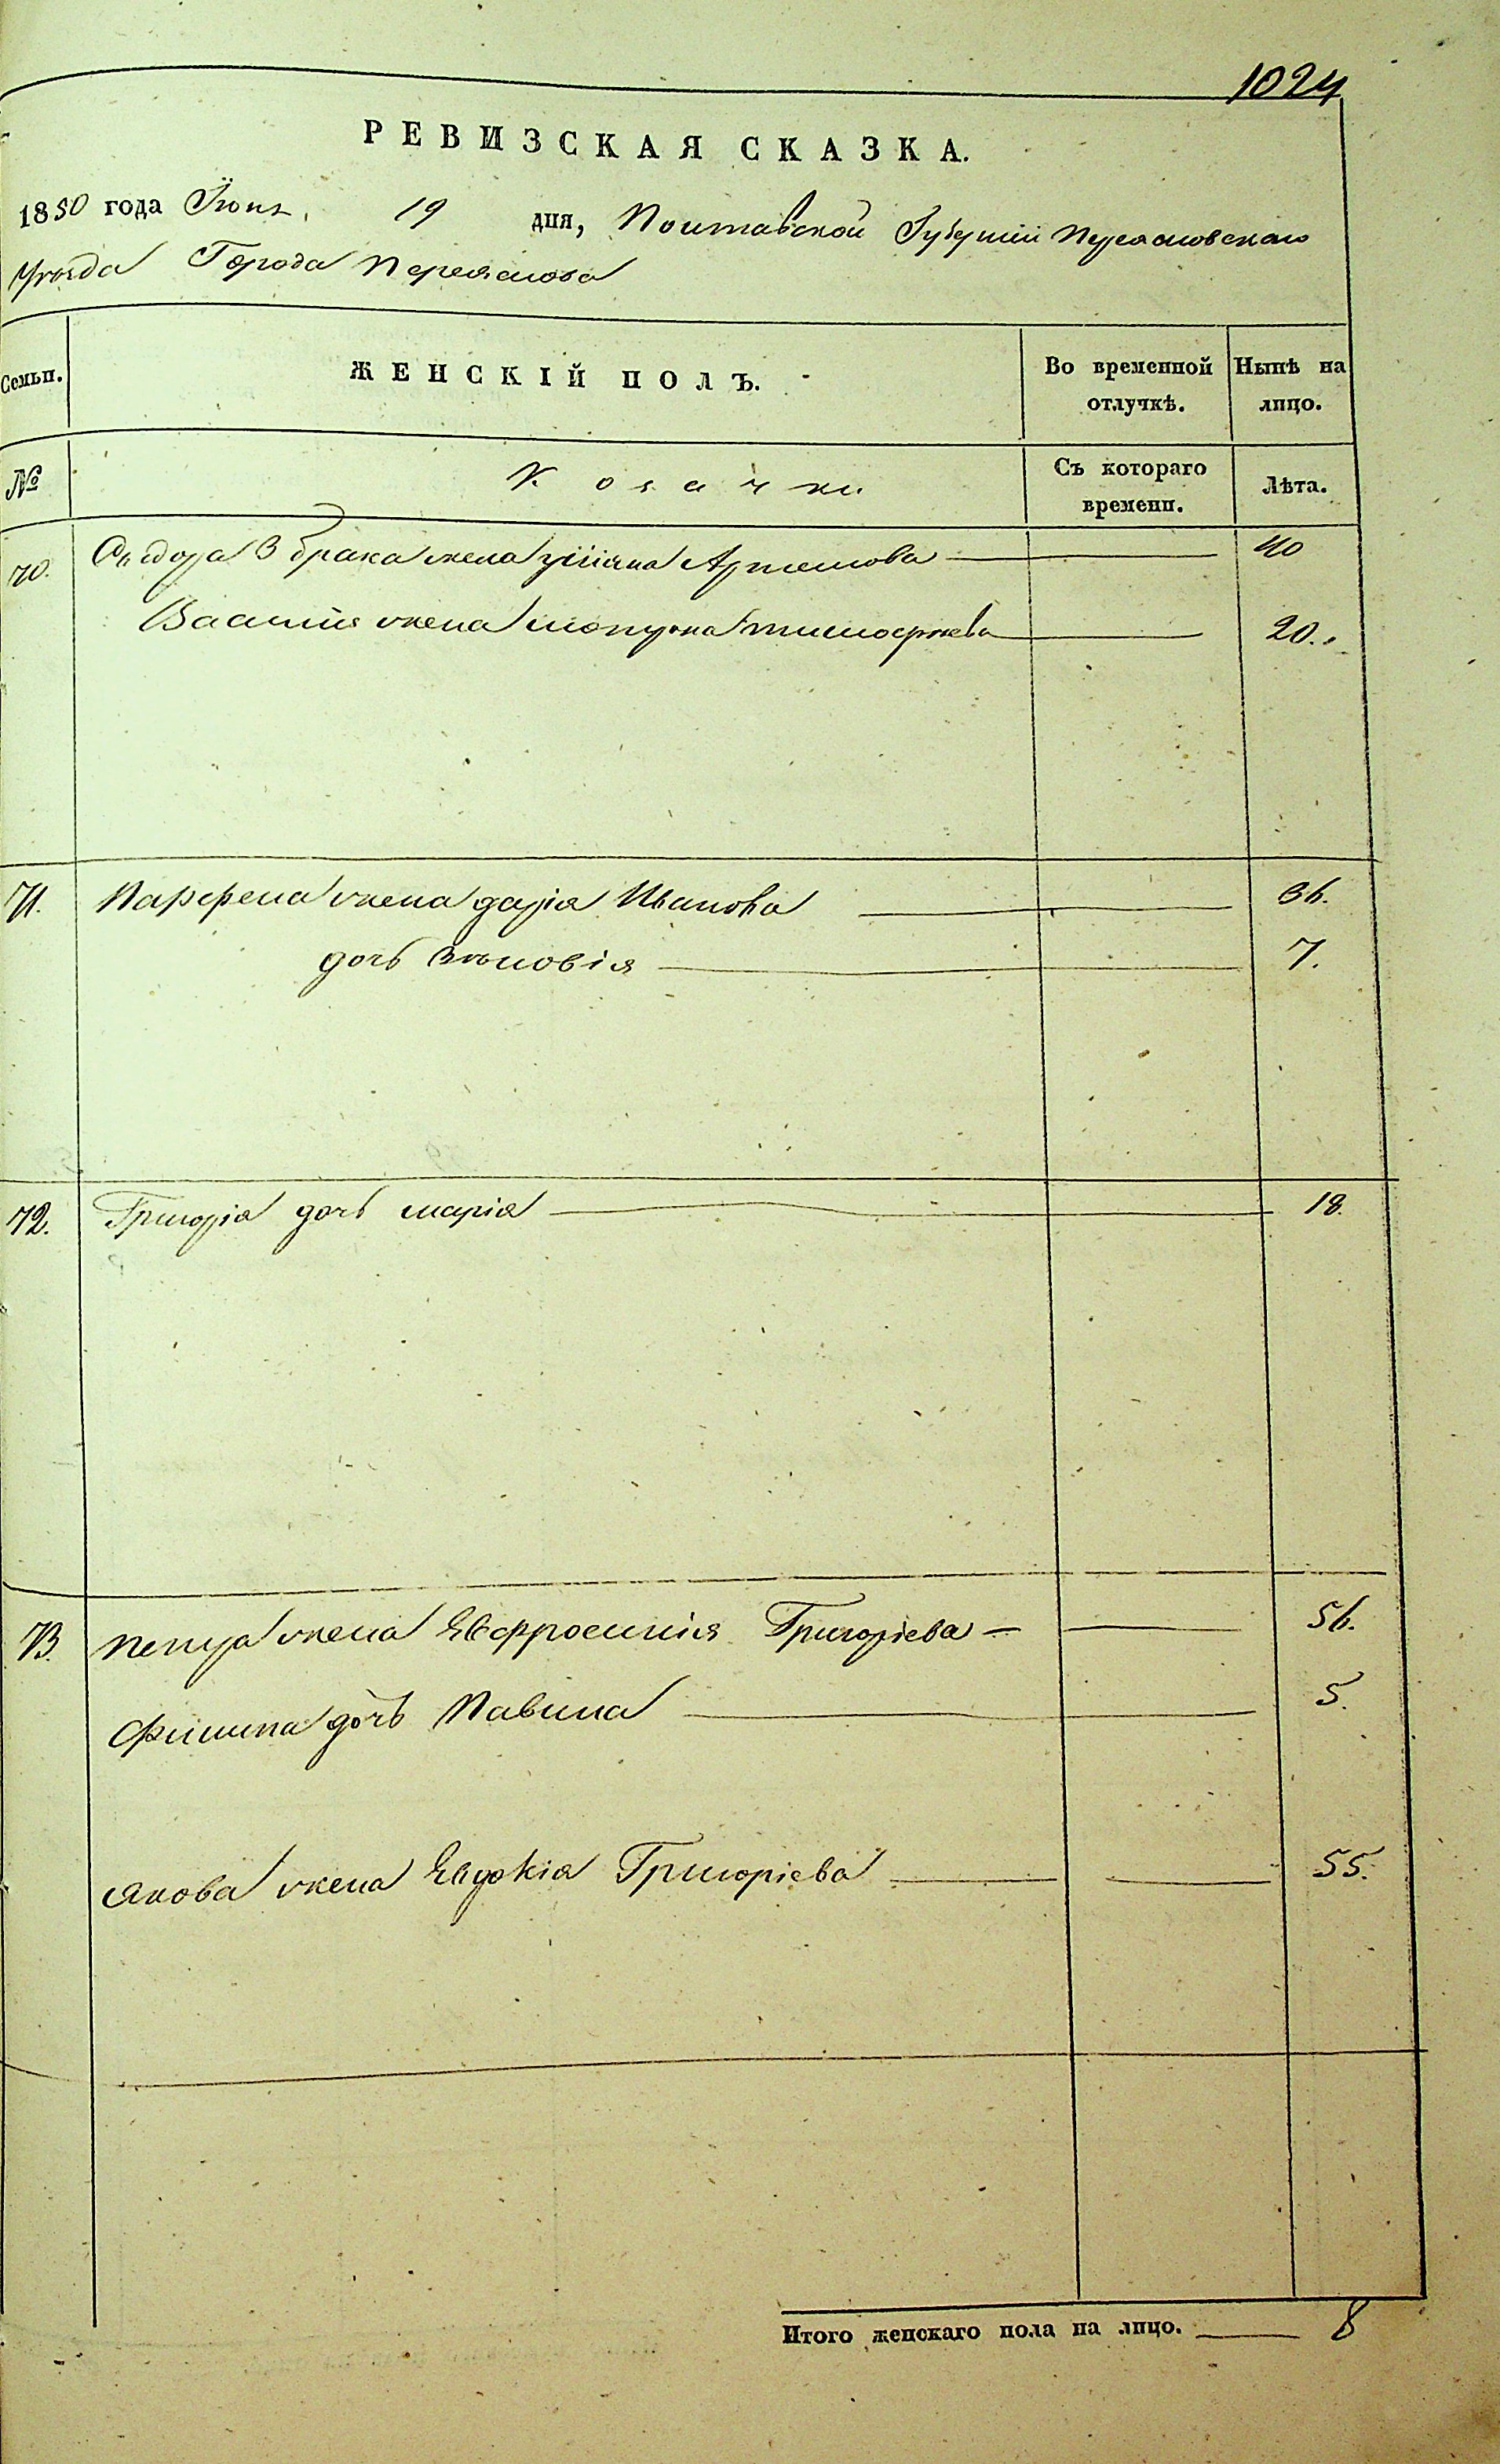 1024
РЕВИЗСКАЯ СКАЗКА.
1850 года Іюня 19 дня, Полтавской Губерніи Переяславскаго
Уѣзда Города Переяслова
Семьи. ЖЕНСКІЙ ПОЛЪ. Во временной отлучкѣ. Нынѣ на лицо.
№ Козачки Съ котораго времени. Лѣта.
70. Сидора 3 брака жена Уліяна Артемова 40
Василія жена Тимофѣева 20.
71. Парфена жена Дарія Иванова 36.
дочь Зѣновія 7.
72. Григорія дочь Марія 18.
73. Петра жена Евфросинія Григоріева 56.
Филипа дочь Павлина 5.
Якова жена Евдокія Григоріева 55.
Итого женскаго пола на лицо. 8